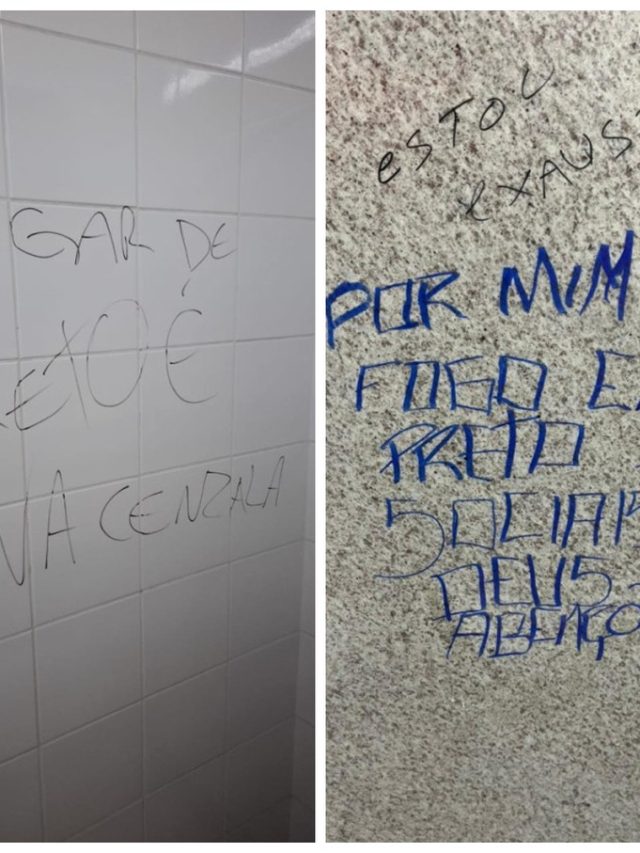 GAR DE
ETO É
NA CENZALA
eSTOU
exAUST
POR MIM
FOGO E
PRETO
SOCIAI
DEUS
ABENÇO